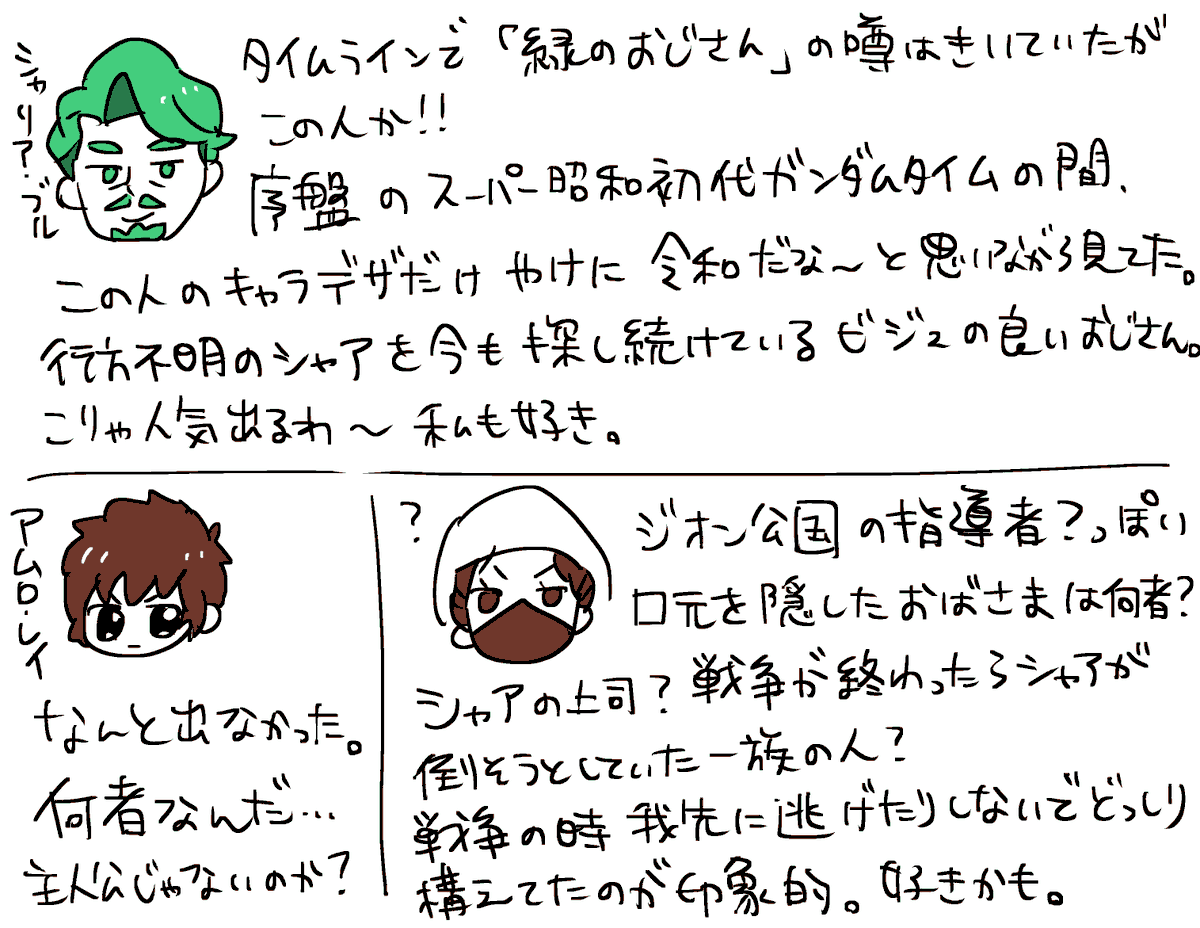 シャリア?ブル
タイムラインで「緑のおじさん」の噂はきいていたが
この人か!!
序盤のスーパー昭和初代ガンダムタイムの間、
この人のキャラデザだけやけに令和だな〜と思いながら見てた。
行方不明のシャアを今も探し続けているビジュの良いおじさん。
こりゃ人気出るわ〜私も好き。
アムロ・レイ
なんと出なかった。
何者なんだ…
主人公じゃないのか?
?
ジオン公国の指導者?っぽい
口元を隠したおばさまは何者?
シャアの上司?戦争が終わったらシャアが
倒そうとしていた一族の人?
戦争の時我先に逃げたりしないでどっしり
構えてたのが印象的。好きかも。